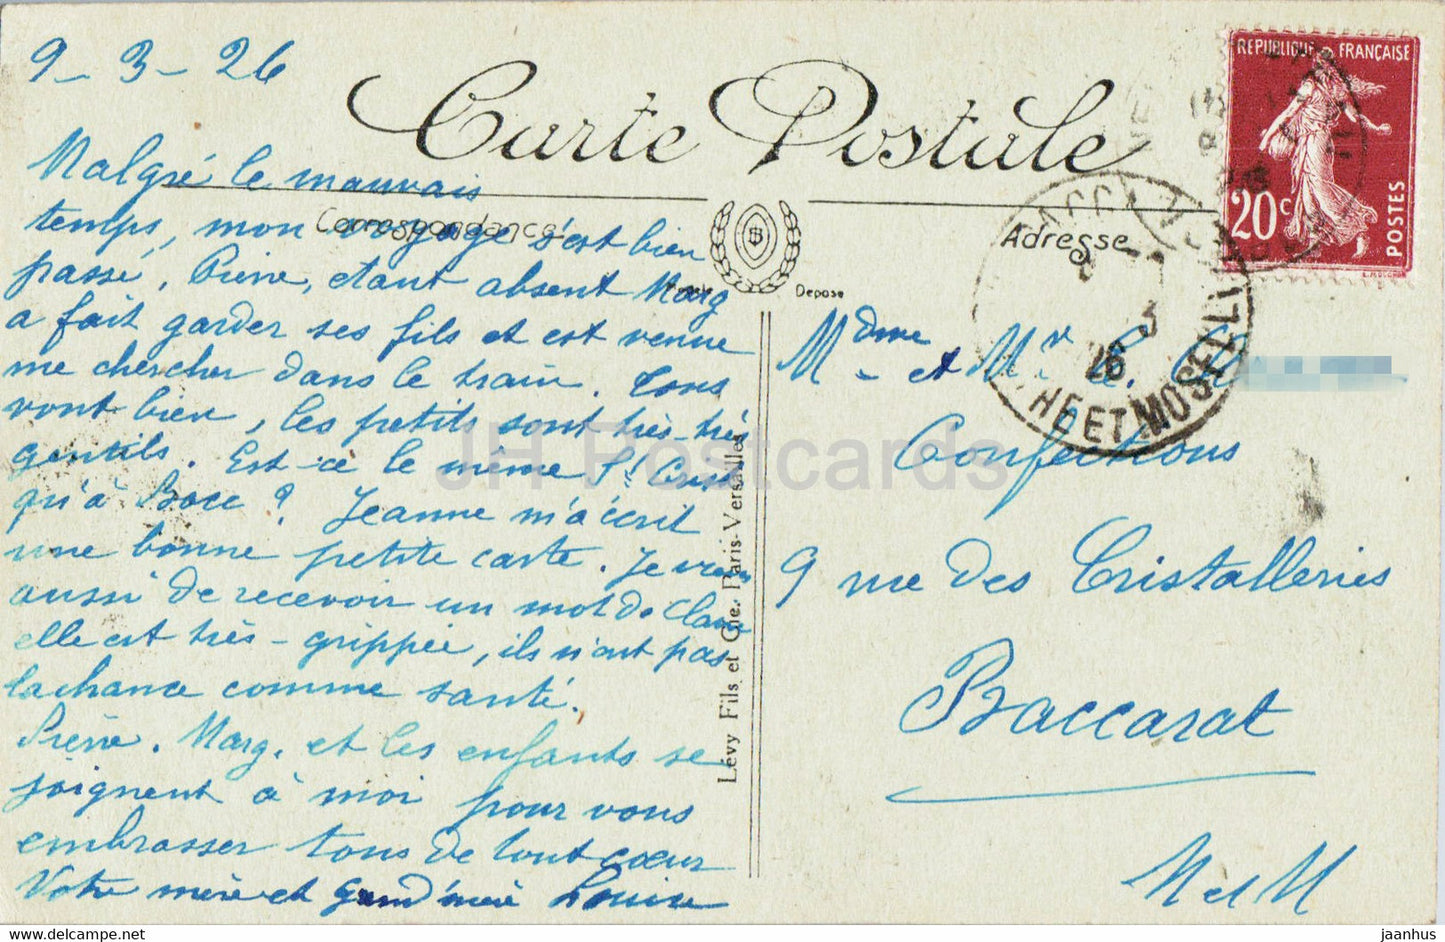 9 - 3 - 26
Carte Postale
REPUBLIQUE FRANÇAISE
20c
POSTES
Correspondance
Adresse
Modèle Déposé
Malgré le mauvais
temps, mon voyage s'est bien
passé, Pierre, étant absent Marg
a fait garder ses fils et est venue
me chercher dans le train. Tous
vont bien, les petits sont très-très
gentils. Est-ce le même St
qu'à Bacc ? Jeanne m'a écrit
une bonne petite carte. Je viens
aussi de recevoir un mot de Claire
elle est très-grippée, ils n'ont pas
la chance comme santé.
Pierre, Marg. et les enfants se
joignent à moi pour vous
embrasser tous de tout cœur
Votre mère et Grand'mère Louise
Lévy Fils et Cie. Paris-Versailles
BACCARAT
26
MEURTHE ET MOSELLE
Mdme et Mr
Confections
9 rue des Cristalleries
Baccarat
M et M
JH Postcards
www.hippostcard.com/store/jaanhus